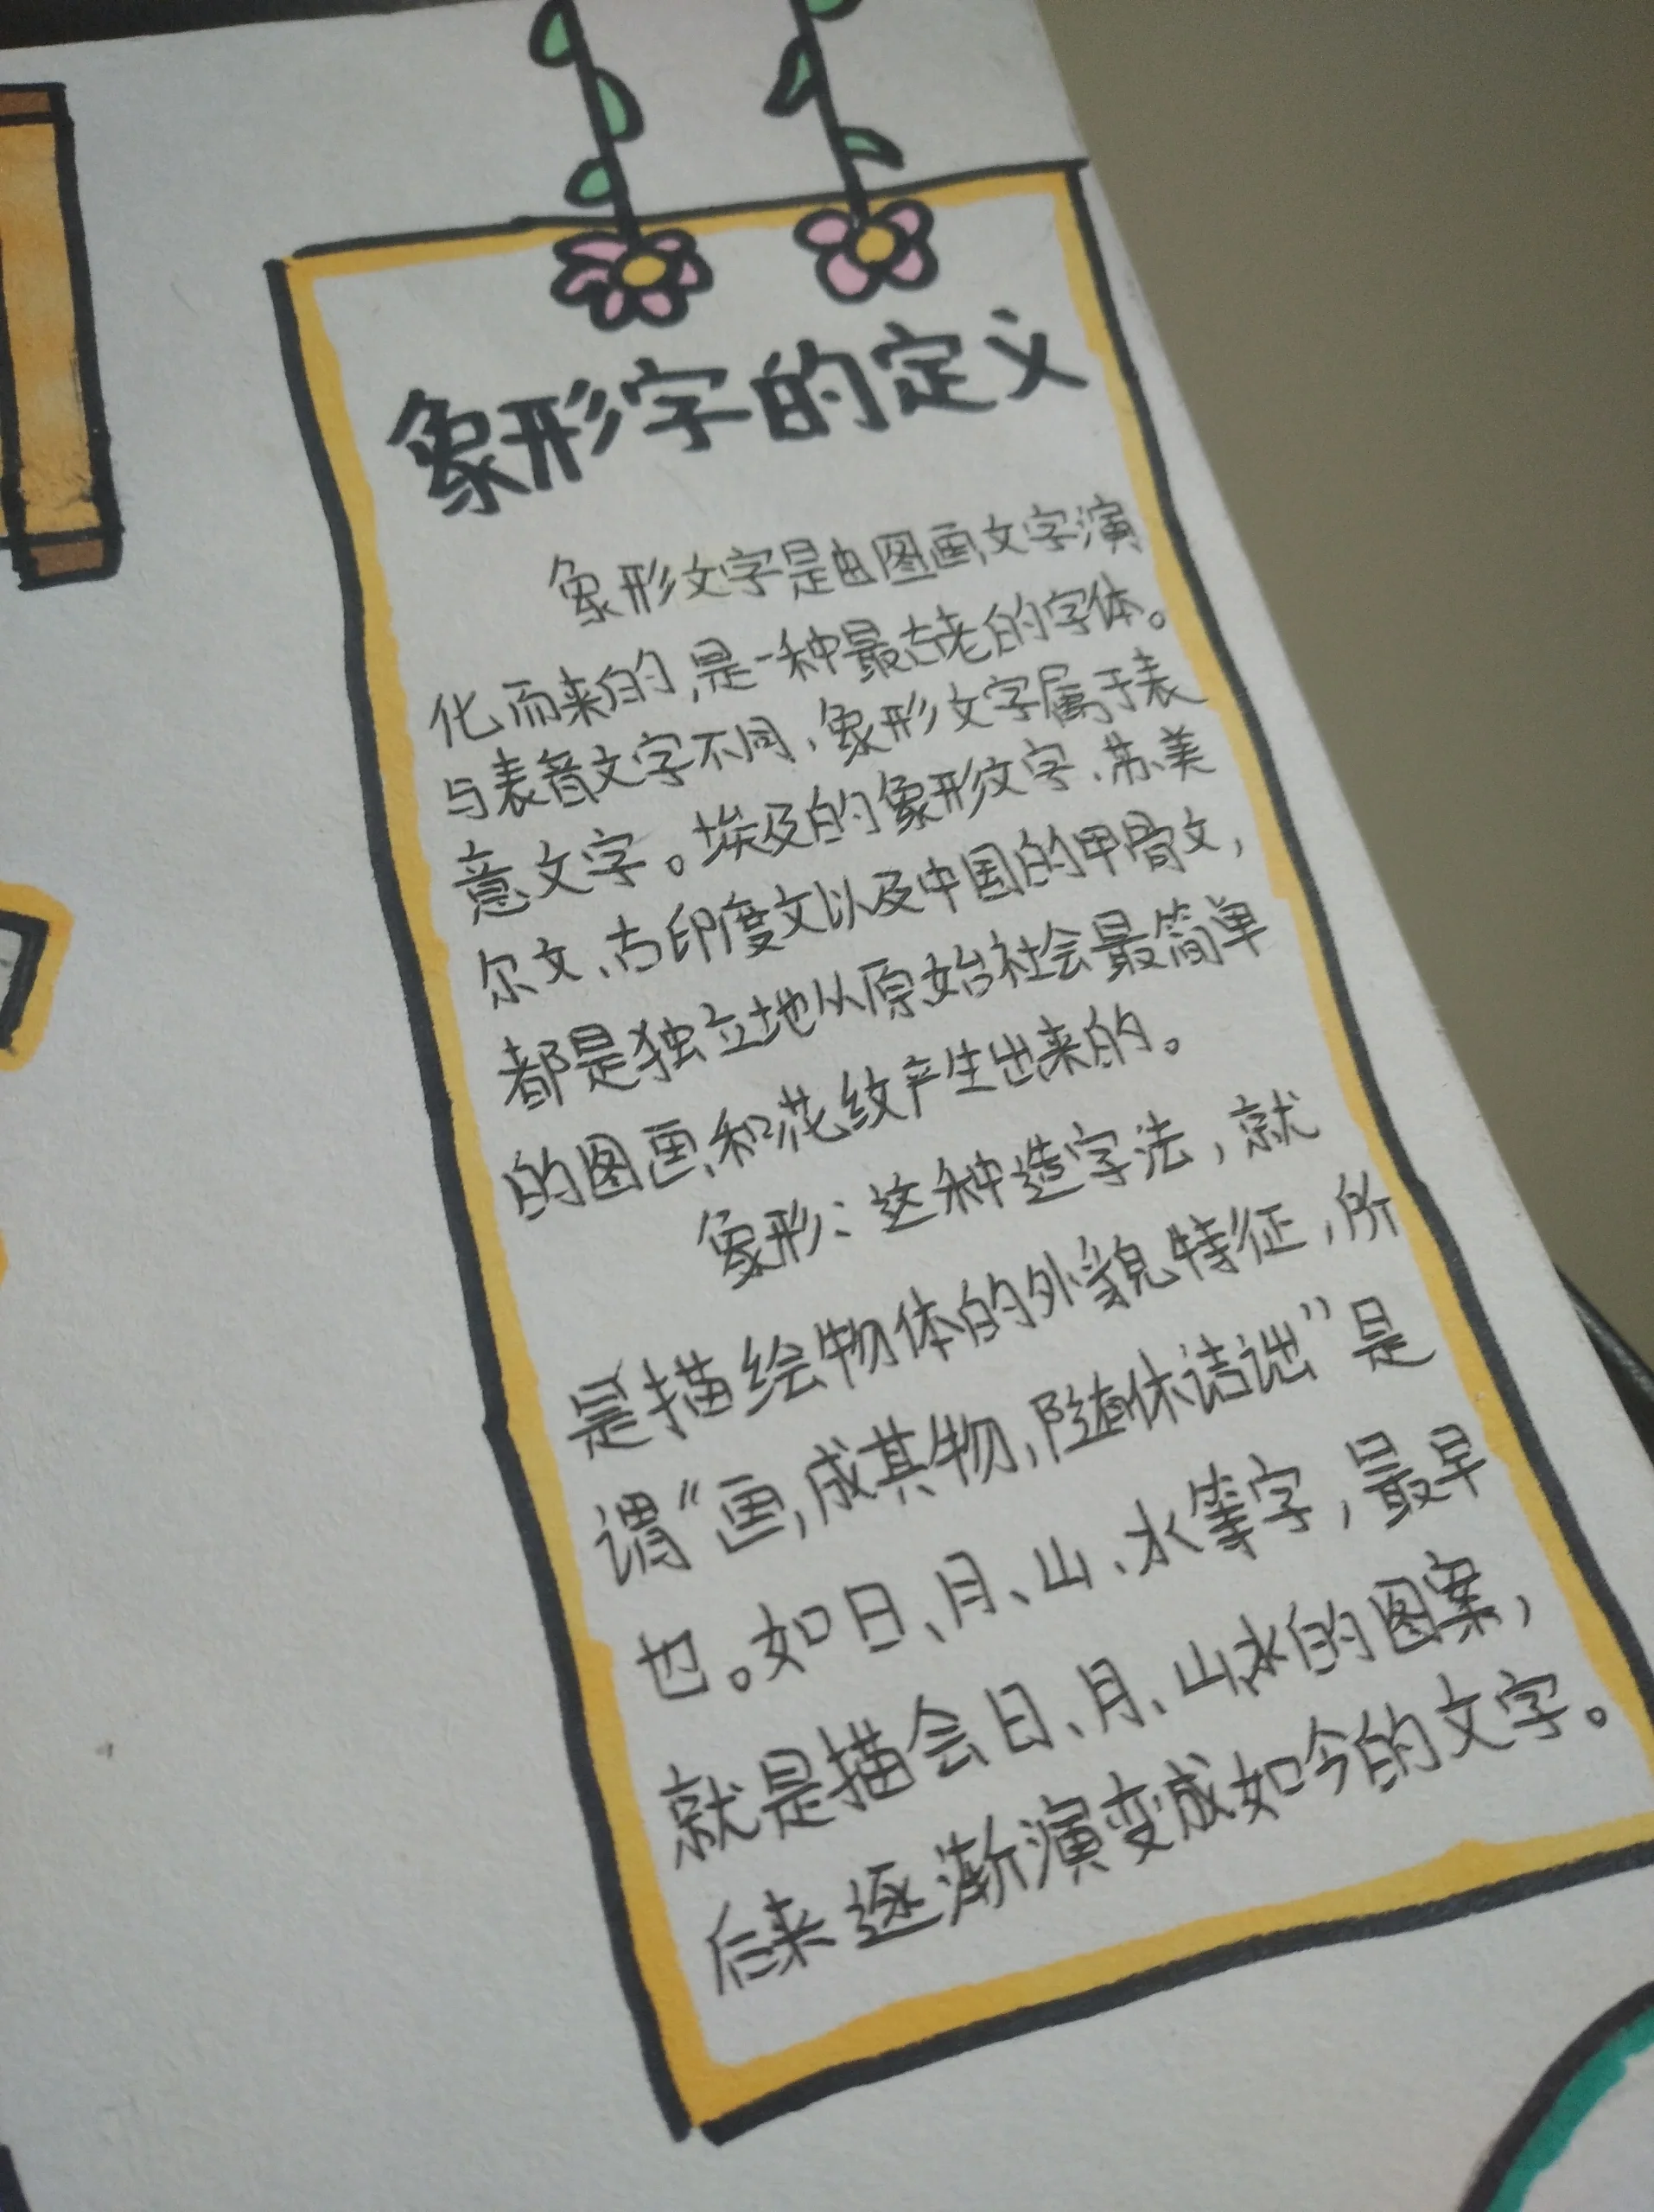 象形字的定义
象形文字是由图画文字演
化而来的,是一种最古老的字体。
与表音文字不同、象形文字属于表
意文字。埃及的象形文字、苏美
尔文、古印度文以及中国的甲骨文,
都是独立地从原始社会最简单
的图画和花纹产生出来的。
象形:这种造字法,就
是描绘物体的外貌特征,所
谓“画,成其物,随休诘诎”是
也。如日、月、山、水等字,最早
就是描会日、月、山水的图案,
后来逐渐演变成如今的文字。